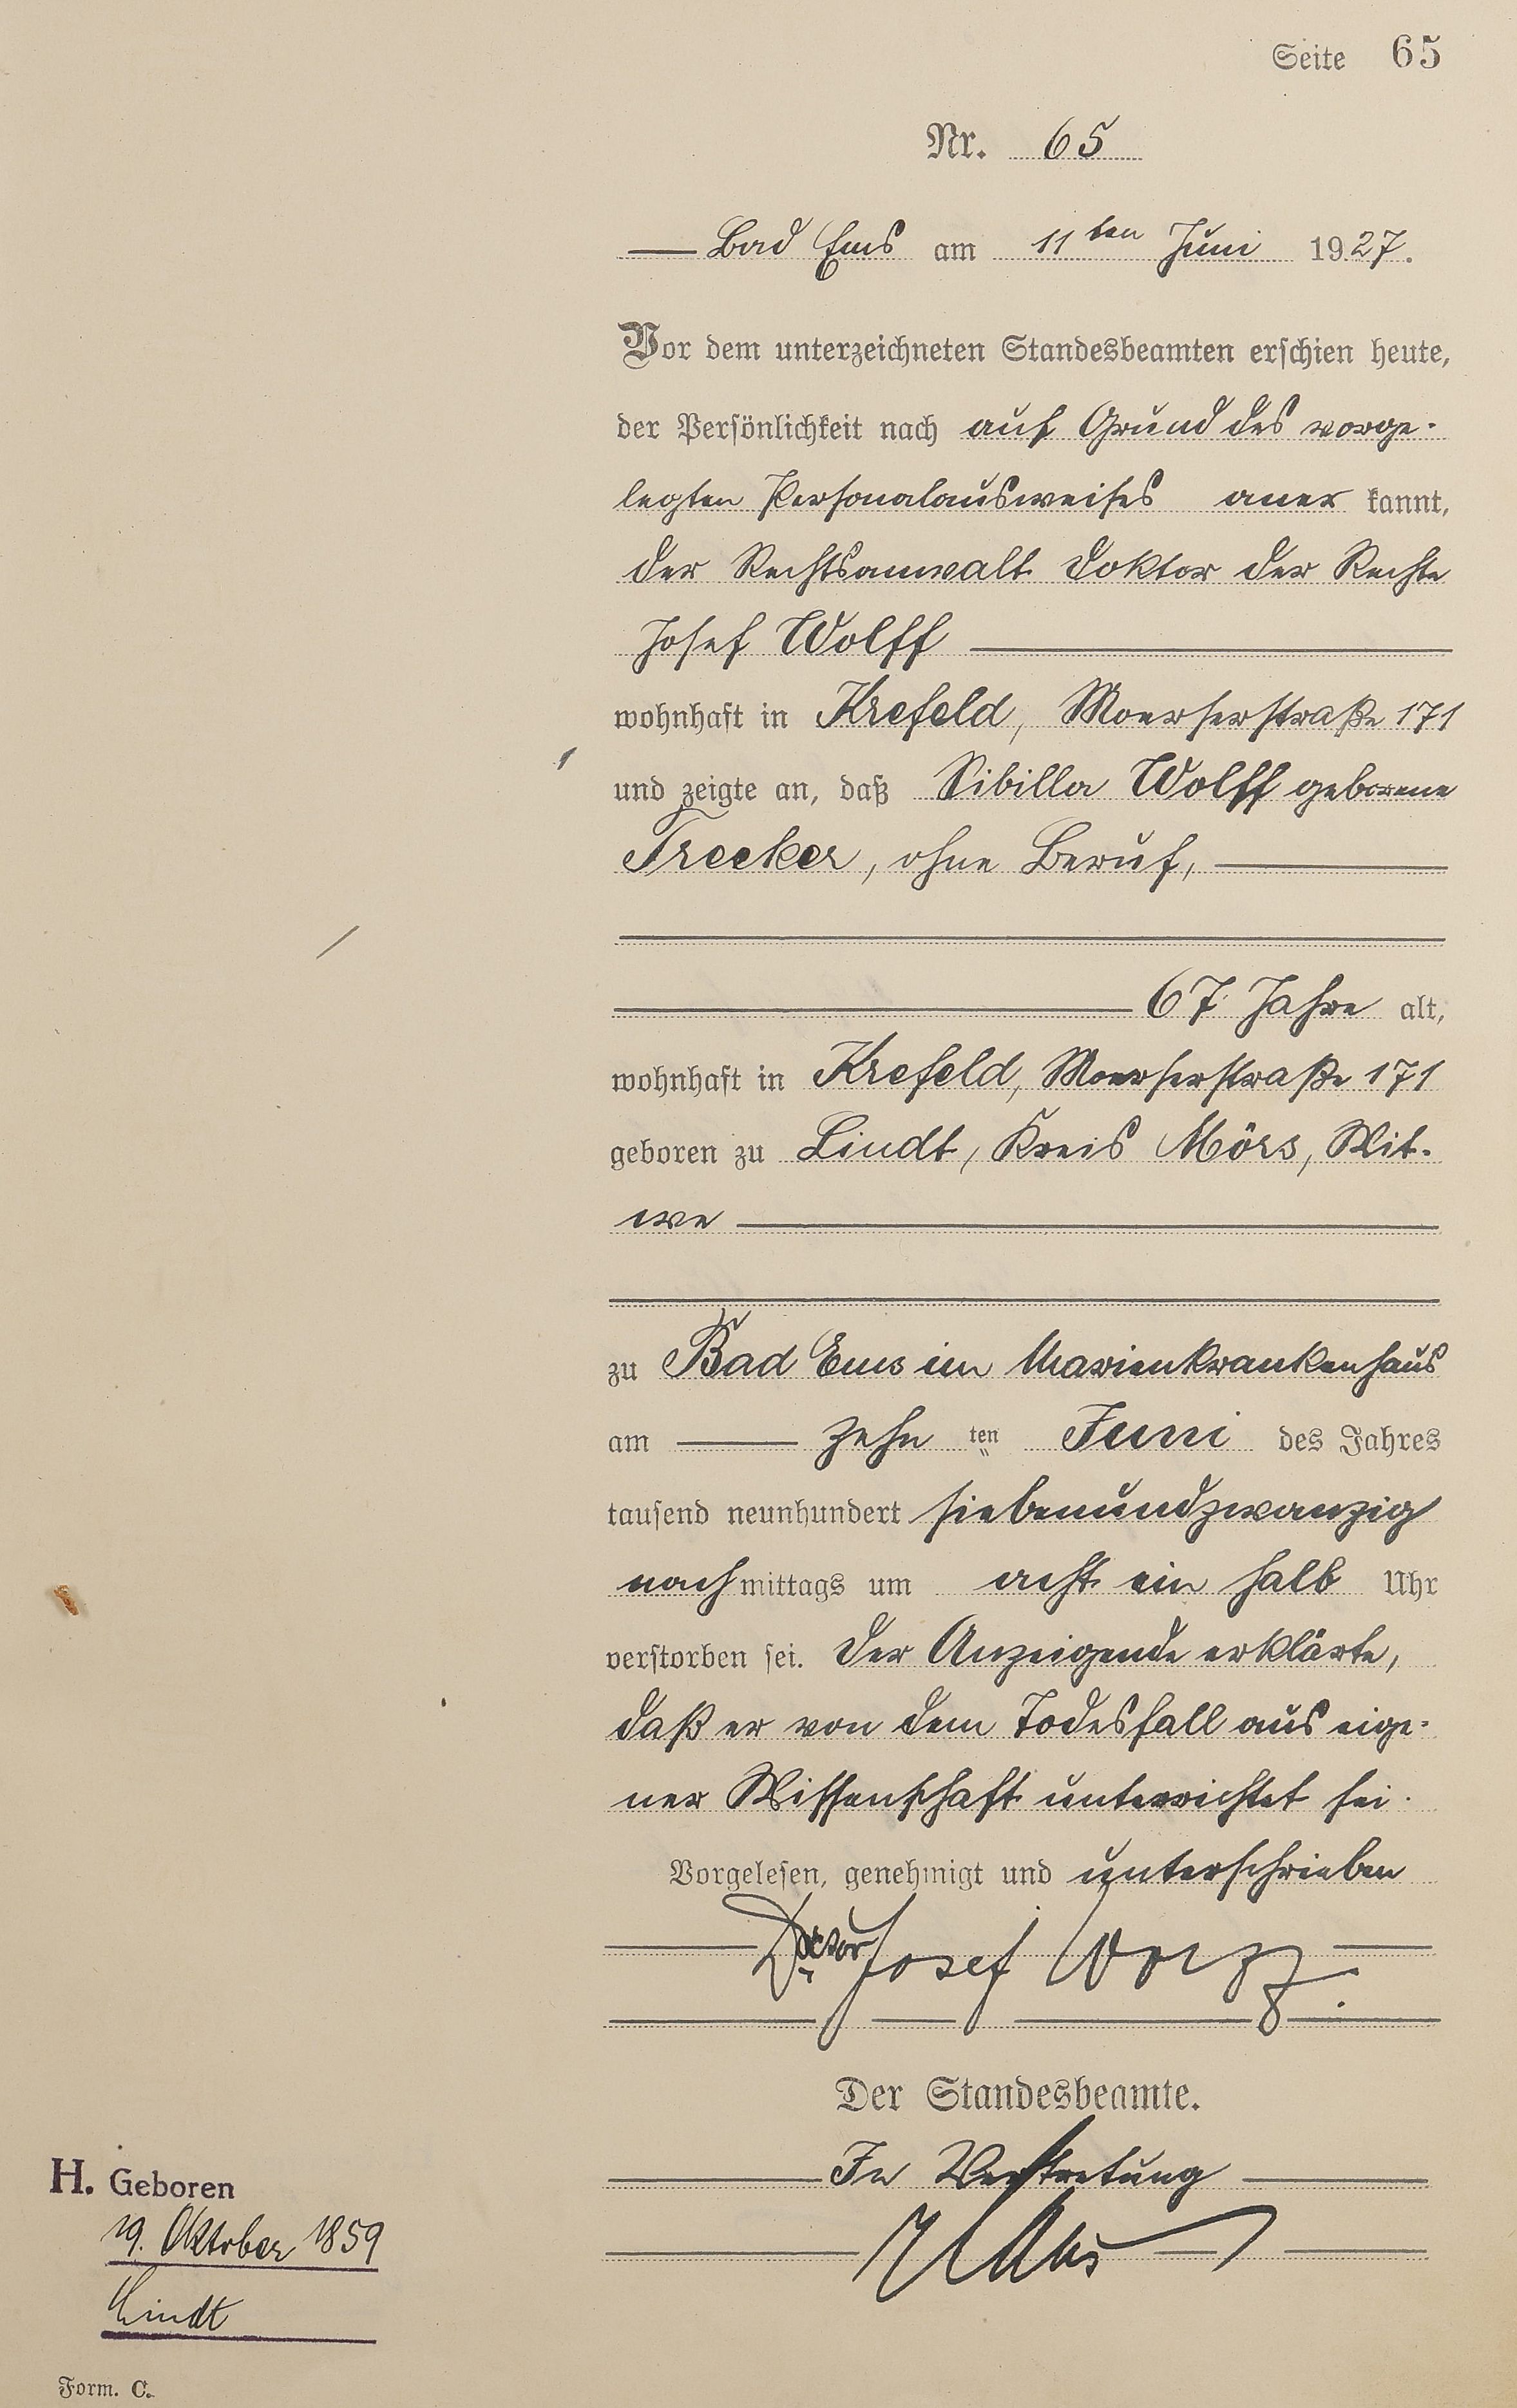 Seite 65
Nr. 65
Bad Ems am 11ten Juni 1927.
Vor dem unterzeichneten Standesbeamten erschien heute,
der Persönlichkeit nach auf Grund des vorge-
legten Personalausweises aner kannt,
der Rechtsanwalt Doktor der Rechte
Josef Wolff
wohnhaft in Krefeld, Moerserstraße 171
und zeigte an, daß Sibilla Wolff geborene
Trecker, ohne Beruf,
67 Jahre alt,
wohnhaft in Krefeld, Moerserstraße 171
geboren zu Lindt, Kreis Mörs, Wit-
we
zu Bad Ems im Marienkrankenhaus
am zehn ten Juni des Jahres
tausend neunhundert siebenundzwanzig
nachmittags um acht ein halb Uhr
verstorben sei. Der Anzeigende erklärte,
daß er von dem Todesfall aus eige-
ner Wissenschaft unterrichtet sei.
Vorgelesen, genehmigt und unterschrieben
Doctor Josef Wolff.
Der Standesbeamte.
In Vertretung
H. Geboren
19. Oktober 1859
Lindt
Form. C.